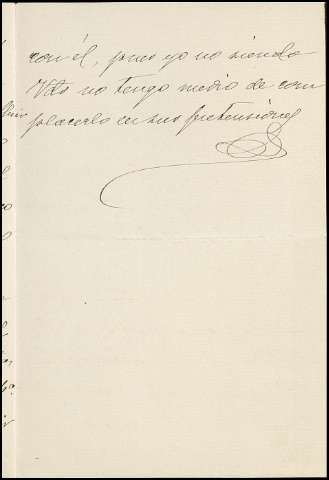 con él, pues yo no siendo
Vds no tengo medio de com
placerlo en sus pretensiones